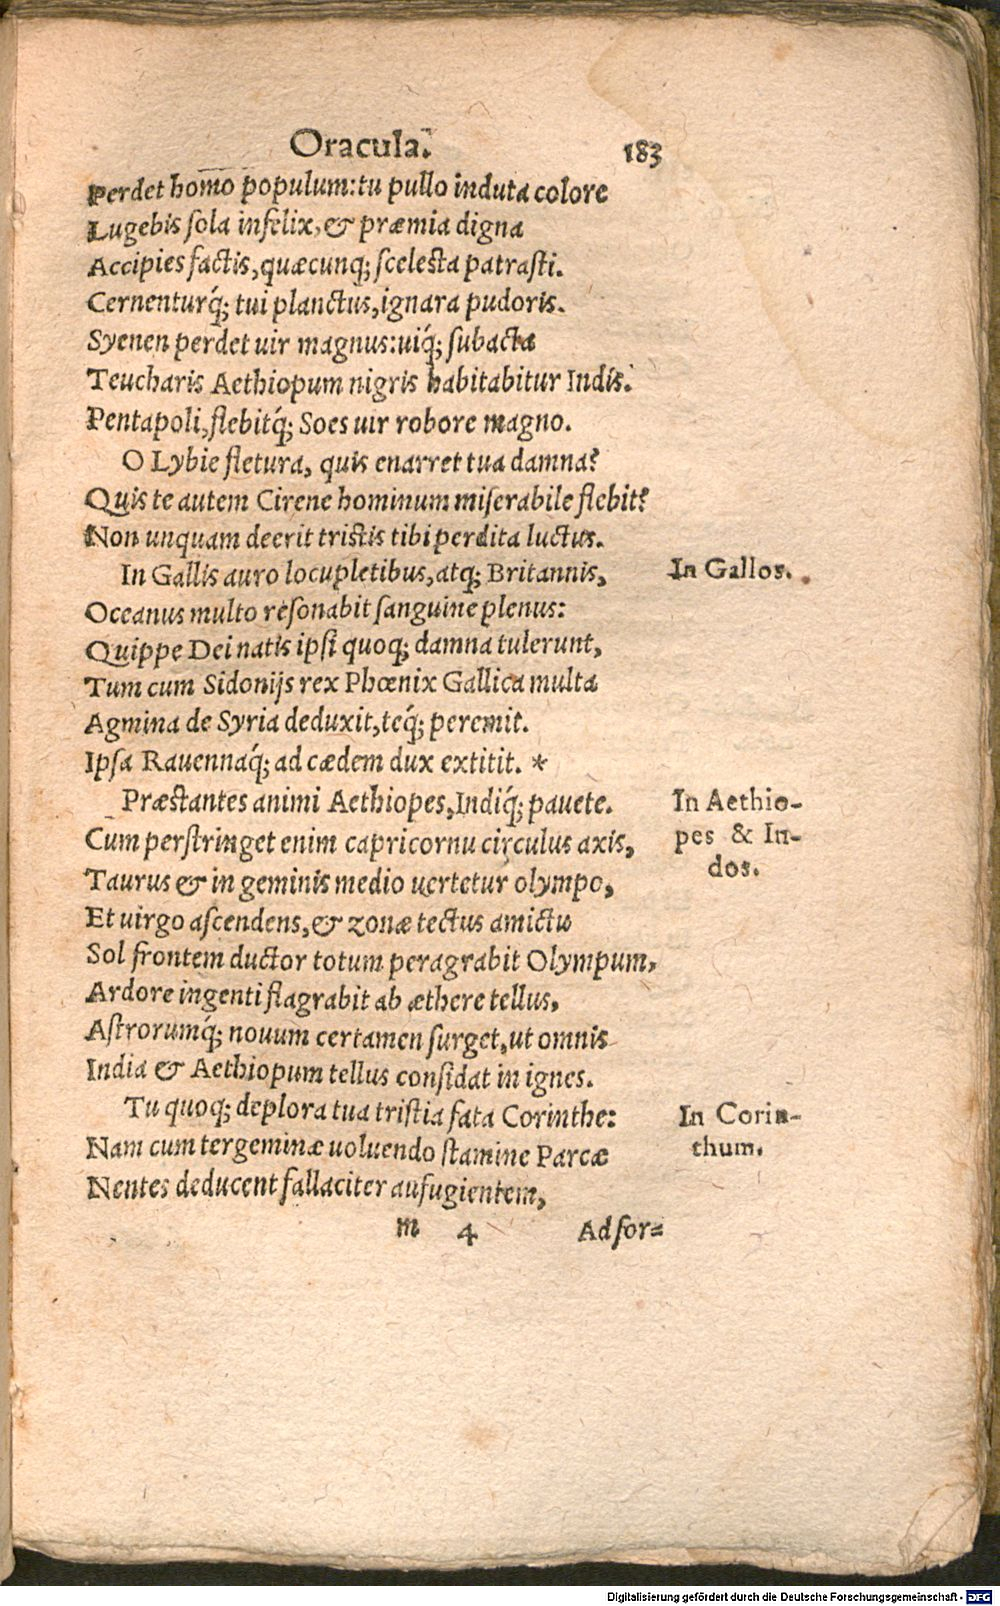 Oracula. 183
Perdet homo populum: tu pullo induta colore
Lugebis sola infelix, & præmia digna
Accipies factis, quæcunq; scelesta patrasti.
Cernenturq́; tui planctus, ignara pudoris.
Syenen perdet uir magnus: uiq́; subacta
Teucharis Aethiopum nigris habitabitur Indis.
Pentapoli, flebitq́; Soes uir robore magno.
O Lybie fletura, quis enarret tua damna?
Quis te autem Cirene hominum miserabile flebit?
Non unquam deerit tristis tibi perdita luctus.
In Gallis auro locupletibus, atq; Britannis,
In Gallos.
Oceanus multo resonabit sanguine plenus:
Quippe Dei natis ipsi quoq; damna tulerunt,
Tum cum Sidonijs rex Phœnix Gallica multa
Agmina de Syria deduxit, teq́; peremit.
Ipsa Rauennaq́; ad cædem dux extitit. *
Præstantes animi Aethiopes, Indiq́; pauete.
In Aethio-
pes & In-
dos.
Cum perstringet enim capricornu circulus axis,
Taurus & in geminis medio uertetur olympo,
Et uirgo ascendens, & zonæ tectus amictu
Sol frontem ductor totum peragrabit Olympum,
Ardore ingenti flagrabit ab æthere tellus,
Astrorumq́; nouum certamen surget, ut omnis
India & Aethiopum tellus considat in ignes.
Tu quoq; deplora tua tristia fata Corinthe:
In Corin-
thum.
Nam cum tergeminæ uoluendo stamine Parcæ
Nentes deducent fallaciter aufugientem,
m 4 Ad for=
Digitalisierung gefördert durch die Deutsche Forschungsgemeinschaft - DFG